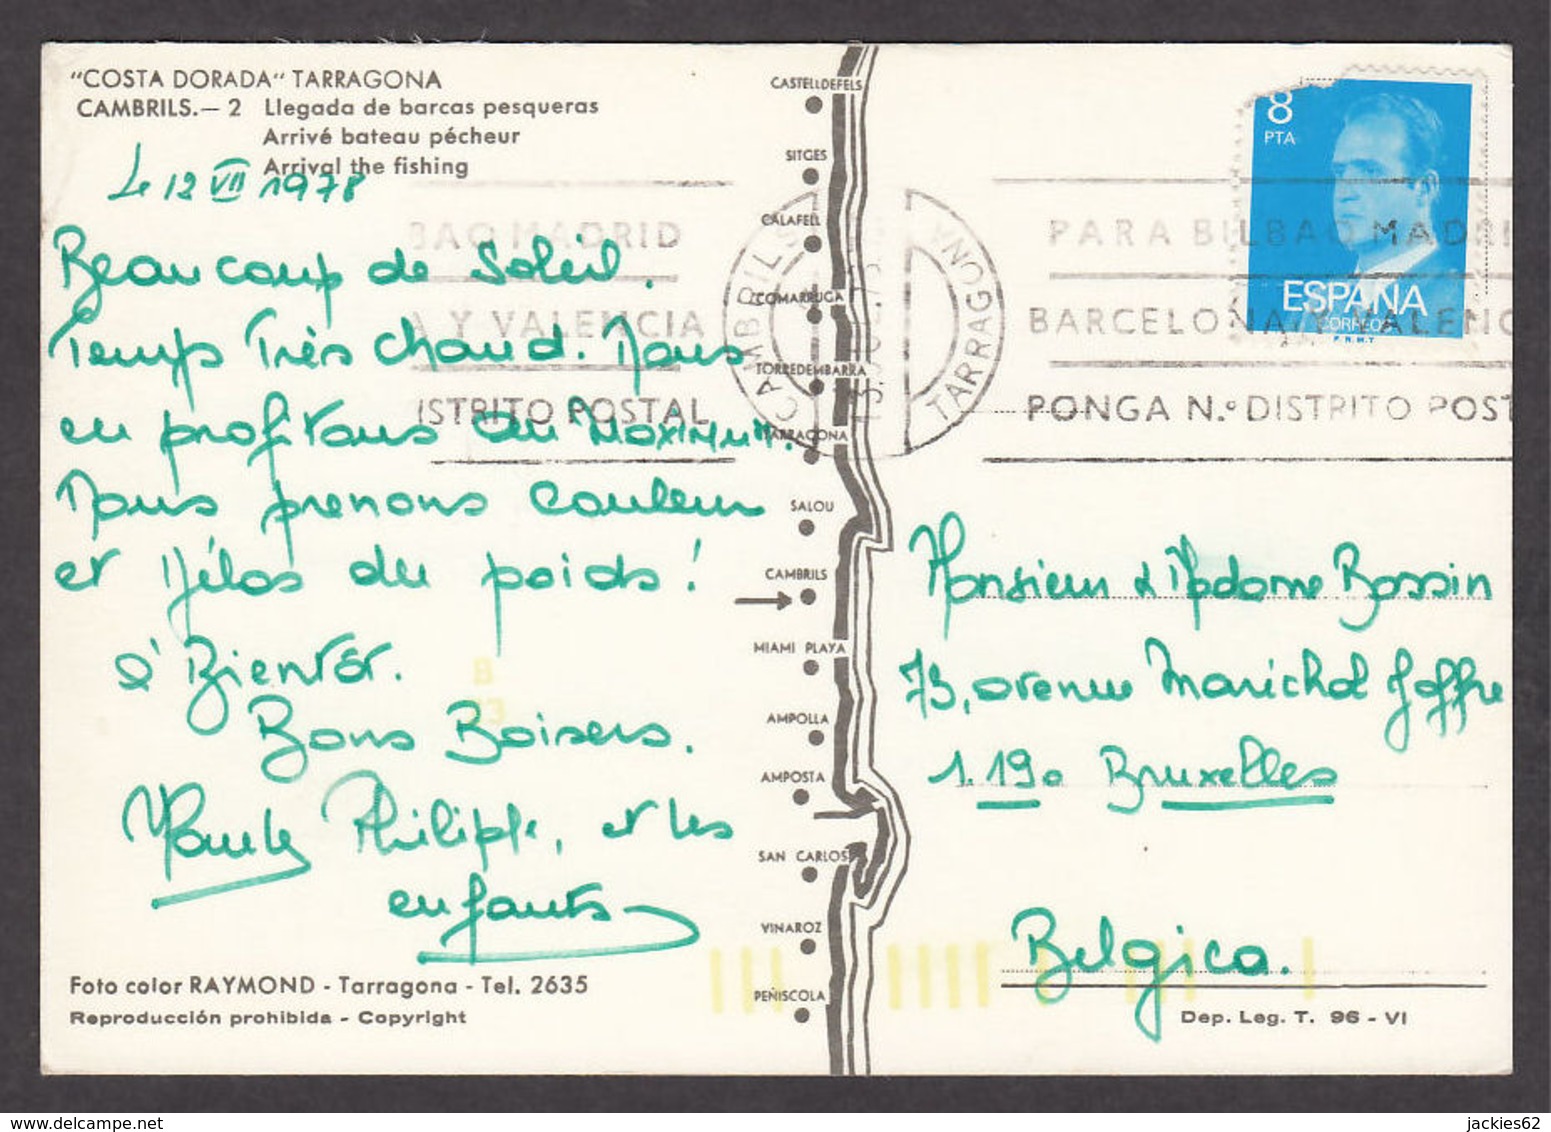 "COSTA DORADA" TARRAGONA
CAMBRILS.— 2 Llegada de barcas pesqueras
Arrivé bateau pécheur
Arrival the fishing
Le 12 VII 1978
Beaucoup de Soleil.
Temps Très chaud. Nous
en profitons au maximum.
Nous prenons couleur
et hélas du poids!
à Bientôt.
Bons Baisers.
Philippe, et les
enfants
Foto color RAYMOND - Tarragona - Tel. 2635
Reproducción prohibida - Copyright
CASTELLDEFELS
SITGES
CALAFELL
COMARRUGA
TORREDEMBARRA
TARRAGONA
SALOU
CAMBRILS
MIAMI PLAYA
AMPOLLA
AMPOSTA
SAN CARLOS
VINAROZ
PEÑISCOLA
BAO MADRID
A Y VALENCIA
ISTRITO POSTAL
CAMBRILS
TARRAGONA
PARA BILBAO MADRI
BARCELONA Y VALENC
PONGA N.º DISTRITO POST
8
PTA
ESPAÑA
CORREOS
F.N.M.T
Monsieur & Madame Bossin
73, avenue Maréchal Joffre
1.190 Bruxelles
Belgica.
Dep. Leg. T. 96 - VI
B
73
jackies62